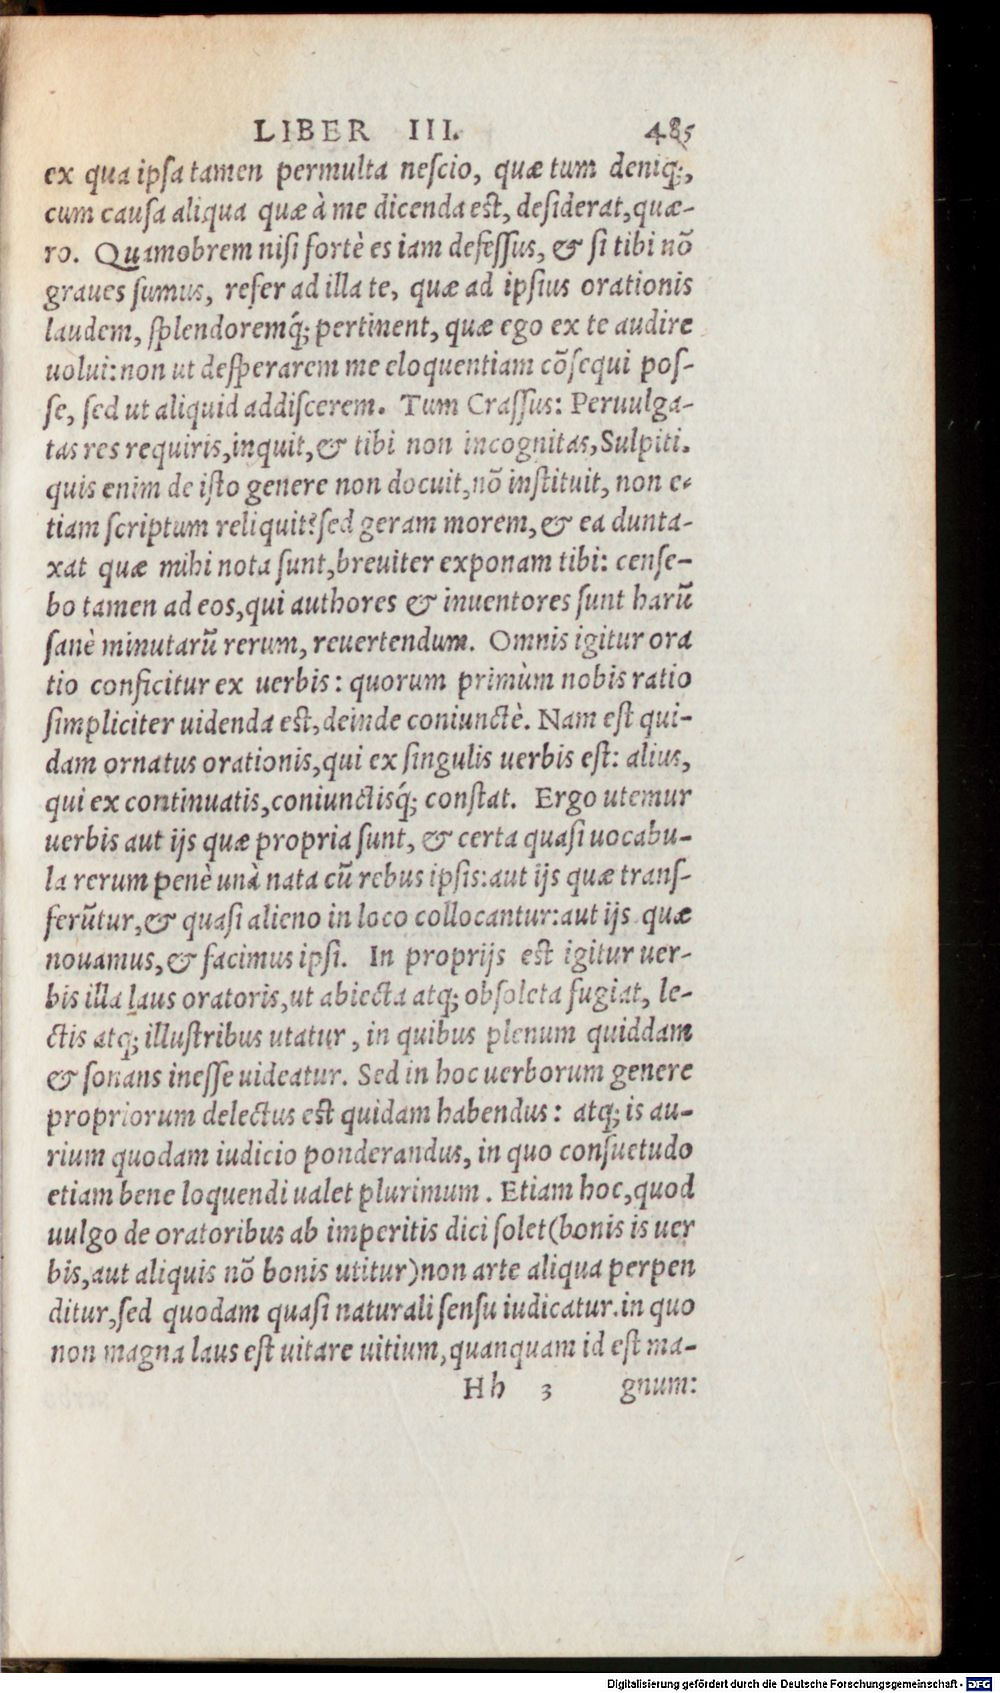 LIBER III. 485
ex qua ipsa tamen permulta nescio, quæ tum deniq;,
cum causa aliqua quæ à me dicenda est, desiderat, quæ-
ro. Quamobrem nisi fortè es iam defessus, & si tibi nõ
graues sumus, refer ad illa te, quæ ad ipsius orationis
laudem, splendoremq́; pertinent, quæ ego ex te audire
uolui: non ut desperarem me eloquentiam cõsequi pos-
se, sed ut aliquid addiscerem. Tum Crassus: Peruulga-
tas res requiris, inquit, & tibi non incognitas, Sulpiti.
quis enim de isto genere non docuit, nõ instituit, non e-
tiam scriptum reliquit? sed geram morem, & ea dunta-
xat quæ mihi nota sunt, breuiter exponam tibi: cense-
bo tamen ad eos, qui authores & inuentores sunt harũ
sanè minutarũ rerum, reuertendum. Omnis igitur ora
tio conficitur ex uerbis: quorum primùm nobis ratio
simpliciter uidenda est, deinde coniunctè. Nam est qui-
dam ornatus orationis, qui ex singulis uerbis est: alius,
qui ex continuatis, coniunctisq́; constat. Ergo utemur
uerbis aut ijs quæ propria sunt, & certa quasi uocabu-
la rerum penè unà nata cũ rebus ipsis: aut ijs quæ trans-
ferũtur, & quasi alieno in loco collocantur: aut ijs quæ
nouamus, & facimus ipsi. In proprijs est igitur uer-
bis illa laus oratoris, ut abiecta atq; obsoleta fugiat, le-
ctis atq; illustribus utatur, in quibus plenum quiddam
& sonans inesse uideatur. Sed in hoc uerborum genere
propriorum delectus est quidam habendus: atq; is au-
rium quodam iudicio ponderandus, in quo consuetudo
etiam bene loquendi ualet plurimum. Etiam hoc, quod
uulgo de oratoribus ab imperitis dici solet (bonis is uer
bis, aut aliquis nõ bonis utitur) non arte aliqua perpen
ditur, sed quodam quasi naturali sensu iudicatur. in quo
non magna laus est uitare uitium, quanquam id est ma-
Hh 3 gnum:
Digitalisierung gefördert durch die Deutsche Forschungsgemeinschaft - DFG